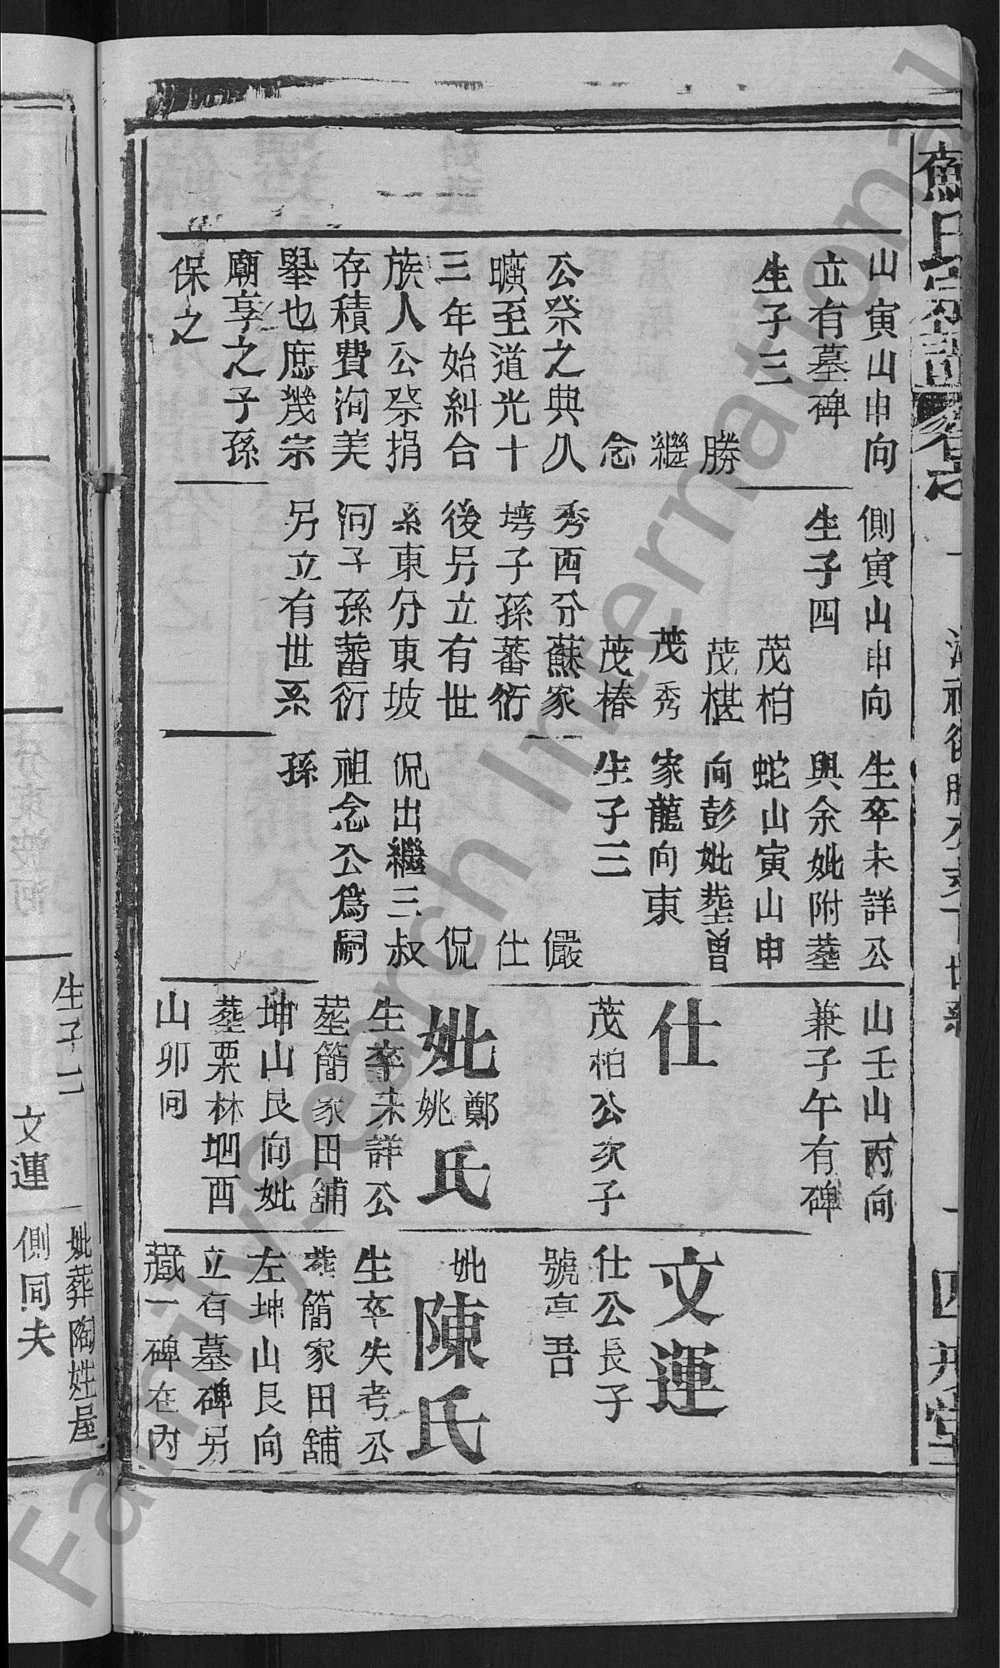 山寅山申向
立有墓碑
生子三
勝
繼
念
公祭之典久
曠至道光十
三年始糾合
族人公祭捐
存積費洵美
舉也庶幾宗
廟享之子孫
保之
側寅山申向
生子四
茂柏
茂椹
茂秀
茂椿
秀西分蘇家
塆子孫蕃衍
後另立有世
系東分東坡
河子孫蕃衍
另立有世系
生卒未詳公
與余妣附塟
蛇山寅山申
向彭妣塟曾
家龍向東
生子三
儼
仕
侃
侃出繼三叔
祖念公爲嗣
孫
山壬山丙向
兼子午有碑
仕
茂柏公次子
妣鄭姚氏
生卒未詳公
塟簡家田舖
坤山艮向妣
塟栗林堌酉
山卯向
文運
仕公長子
號亭吾
妣陳氏
生卒失考公
葬簡家田舖
左坤山艮向
立有墓碑另
藏一碑在內
妣葬陶姓屋
側同夫
生子二
文運
FamilySearch International